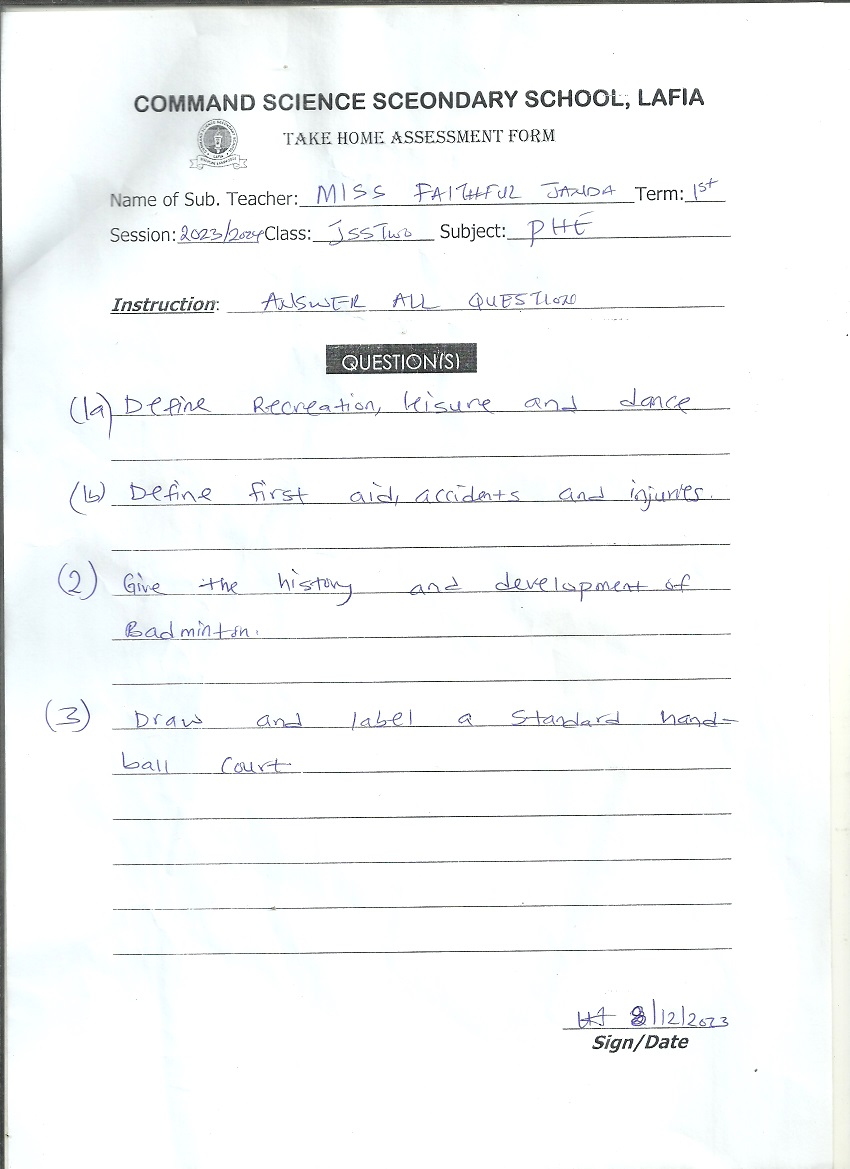 COMMAND SCIENCE SCEONDARY SCHOOL, LAFIA
TAKE HOME ASSESSMENT FORM
Name of Sub. Teacher: MISS FAITHFUL JANDA Term: 1st
Session: 2023/2024 Class: JSS Two Subject: PHE
Instruction: ANSWER ALL QUESTION
QUESTION(S)
(1a) Define Recreation, leisure and dance
(b) Define first aid, accidents and injuries.
(2) Give the history and development of
Badminton.
(3) Draw and label a standard hand-
ball court
8/12/2023
Sign/Date